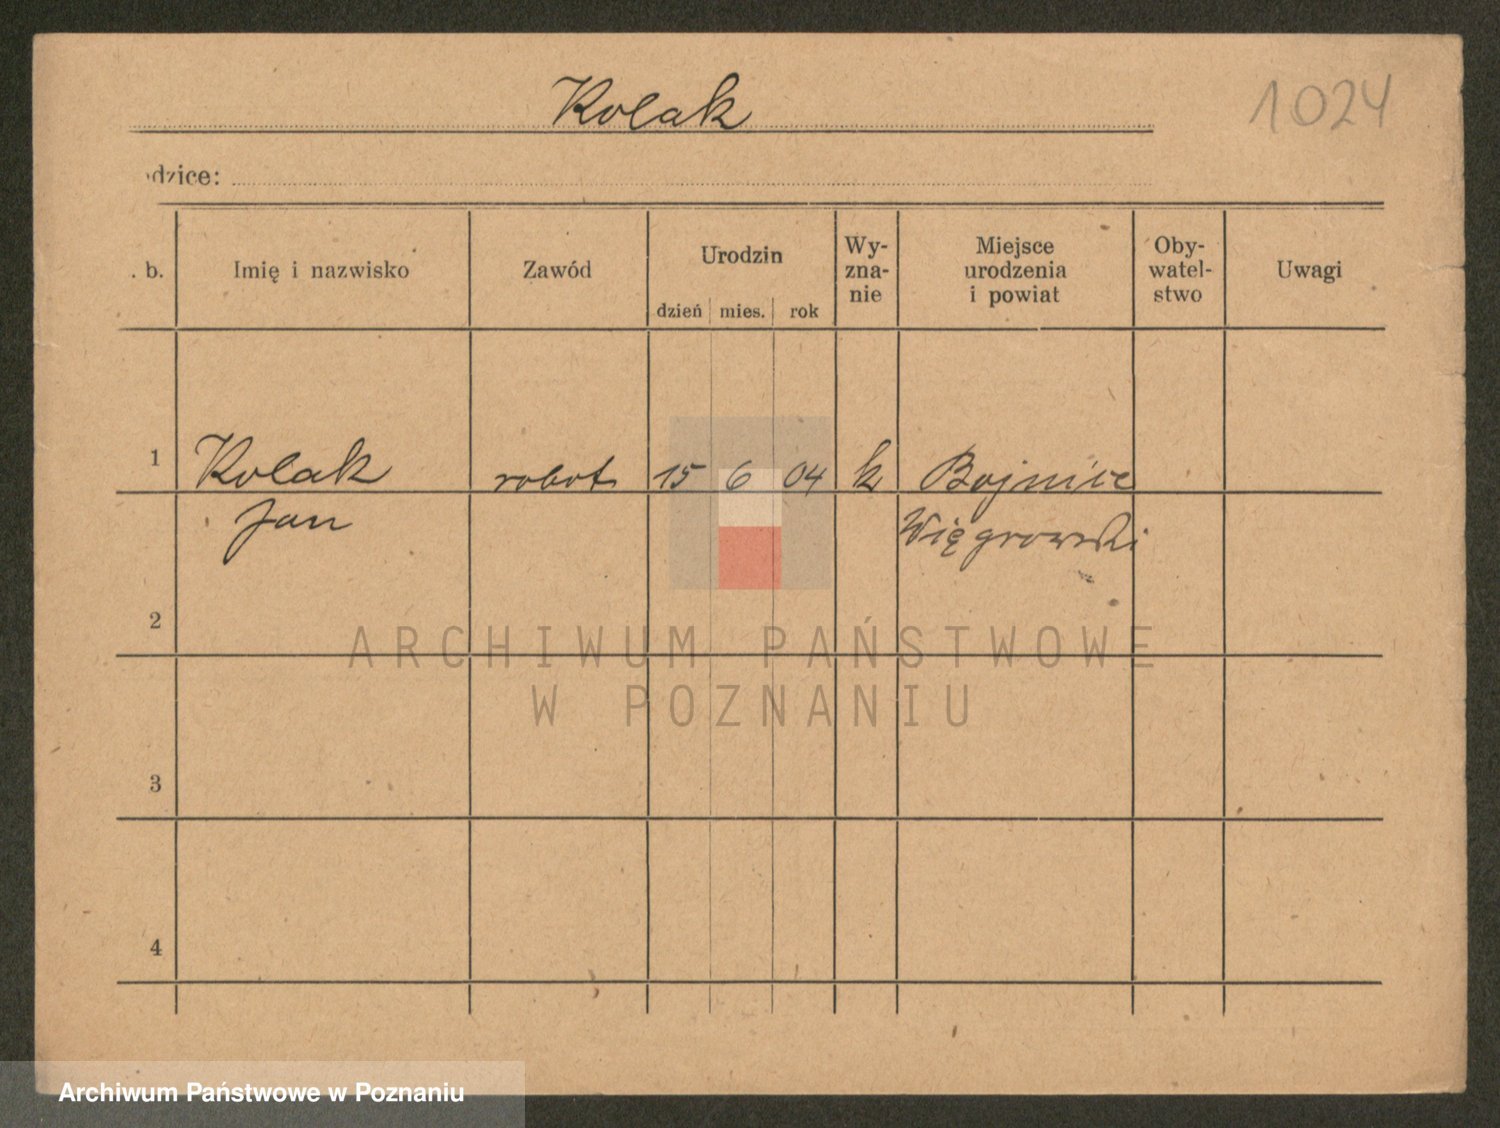 Kolak
1024
odzice:
. b.
Imię i nazwisko
Zawód
Urodzin
dzień mies. rok
Wy-
zna-
nie
Miejsce
urodzenia
i powiat
Oby-
watel-
stwo
Uwagi
1 Kolak robot 15 6 04 k Bojnice
Jan Więgrowski
2
3
4
ARCHIWUM PAŃSTWOWE
W POZNANIU
Archiwum Państwowe w Poznaniu